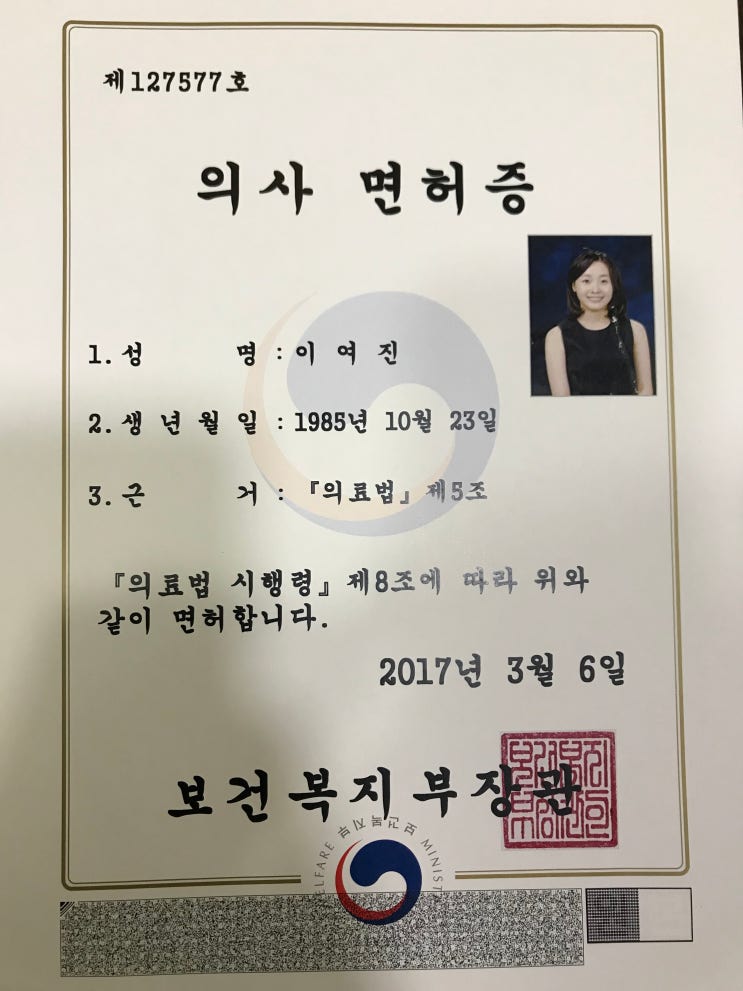 제127577호
의사 면허증
1. 성 명 : 이 여 진
2. 생 년 월 일 : 1985년 10월 23일
3. 근 거 : 『의료법』 제5조
『의료법 시행령』 제8조에 따라 위와
같이 면허합니다.
2017년 3월 6일
보건복지부장관